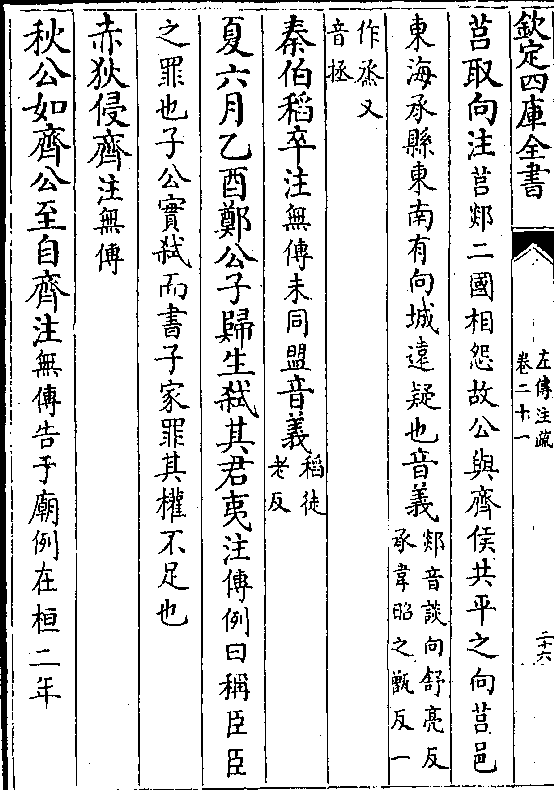 欽定四庫全書
左傳注疏
卷二十一
二十六
莒取向注莒郯二國相怨故公與齊侯共平之向莒邑
東海承縣東南有向城遠疑也音義郯音談向舒亮反
承韋昭之甑反一
作烝又
音拯
秦伯稻卒注無傳未同盟音義稻徒
老反
夏六月乙酉鄭公子歸生弑其君夷注傳例曰稱臣臣
之罪也子公實弑而書子家罪其權不足也
赤狄侵齊注無傳
秋公如齊公至自齊注無傳告于廟例在桓二年